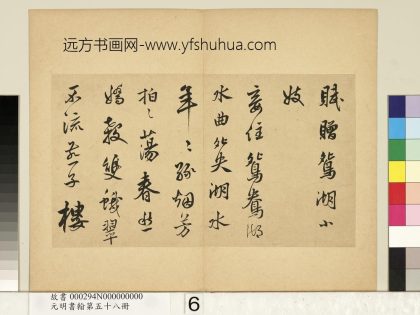 远方书画网-www.yfshuhua.com
賦贈鴛湖小
妓
妾住鴛鴦湖
水曲 湖水
年〻 烟芳
拍〻蕩春
雙 翠
不流 子樓
故書 000294N000000000
元明書翰第五十八冊
6